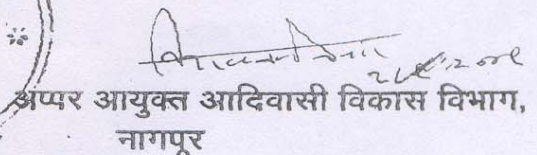 अप्पर आयुक्त आदिवासी विकास विभाग,
नागपुर